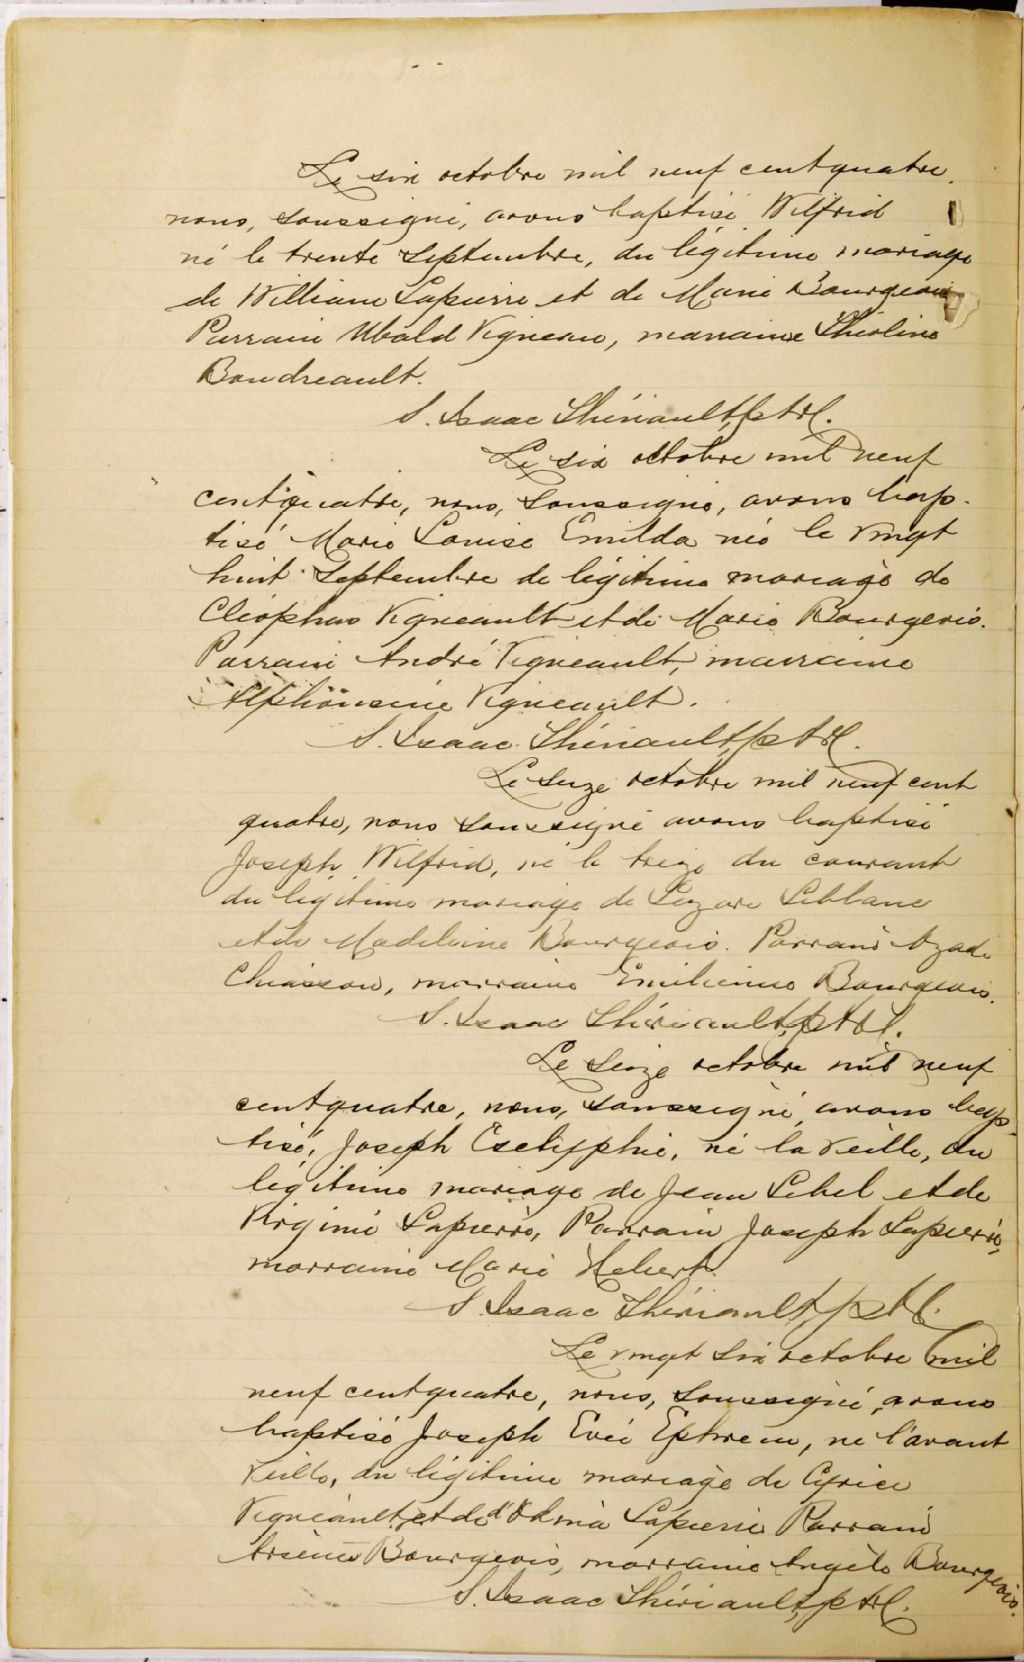 Le six octobre mil neuf cent quatre,
nous, soussigné, avons baptisé Wilfrid
né le trente septembre, du légitime mariage
de William Lapierre et de Marie Bourgeois
Parrain Ubald Vigneau, marraine Théoline
Boudreault.
S. Isaac Thériault, ptre.
Le six octobre mil neuf
cent quatre, nous, soussigné, avons bap-
tisé Marie Louise Emilda née le vingt
huit septembre de légitime mariage de
Cléophas Vigneault et de Marie Bourgeois.
Parrain André Vigneault, marraine
Alphonsine Vigneault.
S. Isaac Thériault, ptre.
Le seize octobre mil neuf cent
quatre, nous soussigné avons baptisé
Joseph Wilfrid, né le treize du courant
du légitime mariage de Lazare Leblanc
et de Madeleine Bourgeois. Parrain Azade
Chiasson, marraine Emilienne Bourgeois.
S. Isaac Thériault, ptre.
Le seize octobre mil neuf
cent quatre, nous, soussigné, avons bap-
tisé, Joseph, né la veille, du
légitime mariage de Jean Lebel et de
Virginie Lapierre, Parrain Joseph Lapierre,
marraine Marie Hebert.
S. Isaac Thériault, ptre.
Le vingt six octobre mil
neuf cent quatre, nous, soussigné, avons
baptisé Joseph Ephrem, né l'avant
veille, du légitime mariage de Cyrice
Vigneault et de Lapierre Parrain
Arsène Bourgeois, marraine Angèle Bourgeois.
S. Isaac Thériault, ptre.